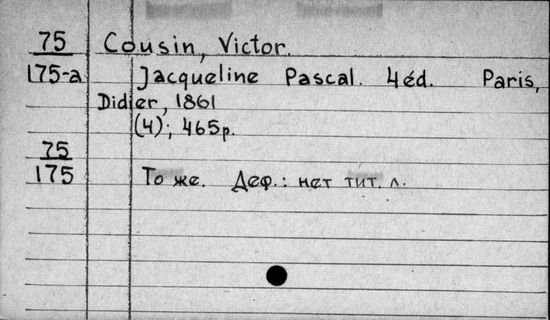 75 Cousin, Victor.
175-a Jacqueline Pascal. 4éd. Paris,
Didier, 1861
(4); 465p.
75
175 То же. Деф.: нет тит. л.